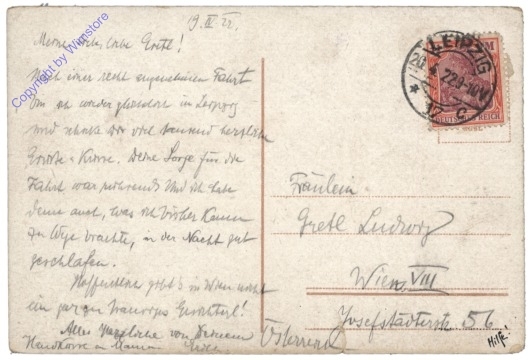 19. IV 22.
Meine liebe, liebe Gretl!
Nach einer recht angenehmen Fahrt
bin ich wieder glücklich in Leipzig
und schicke Dir viel tausend herzliche
Grüsse & Küsse. Deine Sorge für die
Fahrt war rührend und ich habe
denn auch, was ich bisher kaum
zu Wege brachte, in der Nacht gut
geschlafen.
Hoffentlich gibt's in Wien nicht
ein gar zu trauriges Gesichterl!
Alles Herzliche von Deinem
Handküsse an Mama
LEIPZIG
20. 4. 22. 9-10V.
DEUTSCHES REICH
Fräulein
Gretl Ludwig
Wien VIII
Josefstädterstr. 56
Österreich
Copyright by Wimstore